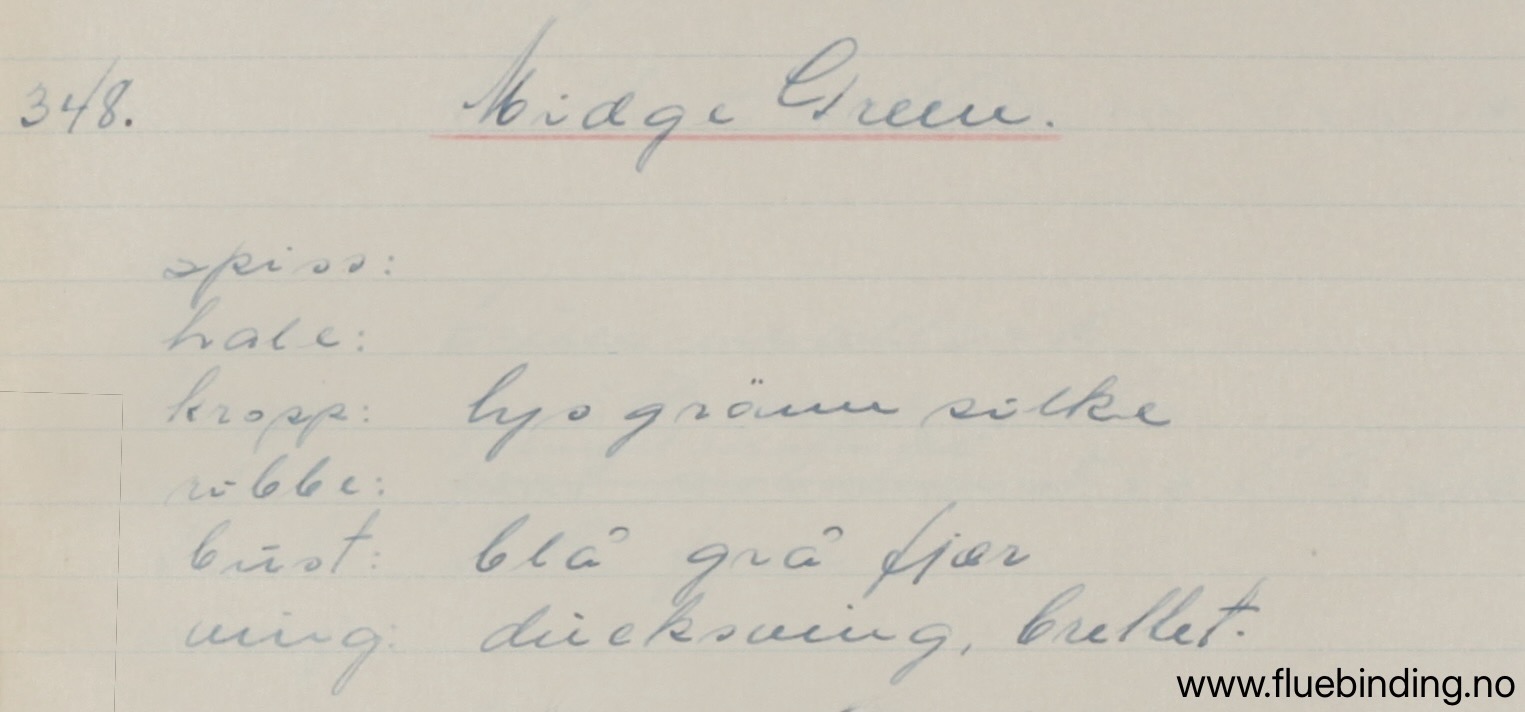 348. Midge Green.
spiss:
hale:
kropp: lys gränn silke
ribbe:
büst: blå grå fjær
ving: düeksving, brettet.
www.fluebinding.no